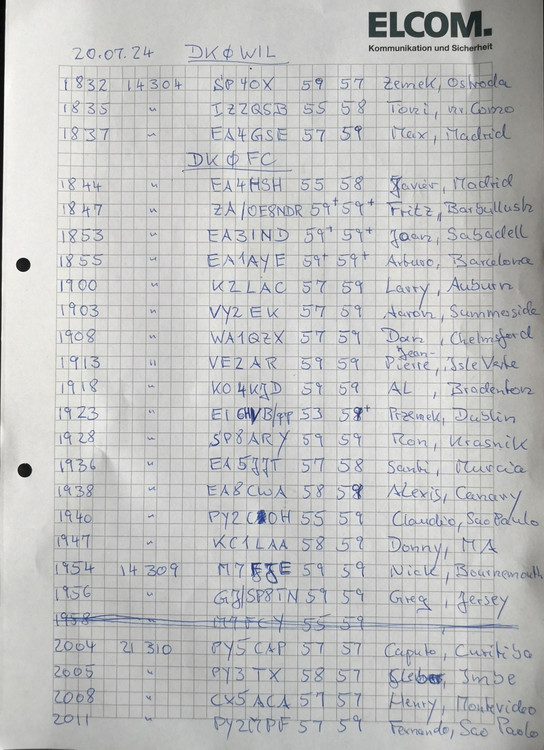 ELCOM.
Kommunikation und Sicherheit
20.07.24 DKØWIL
1832 14304 SP4OX 59 57 Zemek, Ostroda
1835 " IZ2QSB 55 58 Toni, nr. Como
1837 " EA4GSE 57 59 Max, Madrid
DKØFC
1844 " EA4HSH 55 58 Javier, Madrid
1847 " ZA/OE8NDR 59+ 59+ Fritz, Barbullush
1853 " EA3IND 59+ 59+ Joan, Sabadell
1855 " EA1AYE 59+ 59+ Arturo, Barcelona
1900 " K2LAC 57 59 Larry, Auburn
1903 " VY2EK 57 59 Aaron, Summerside
1908 " WA1QZX 57 59 Dan, Chelmsford
1913 " VE2AR 59 59 Jean-Pierre, Isle Verte
1918 " KO4KJD 59 59 AL, Bradenton
1923 " EI6 /qp 53 58+ Przemek, Dublin
1928 " SP8ARY 59 59 Ron, Krasnik
1936 " EA5JJT 57 58 Santi, Murcia
1938 " EA8CWA 58 58 Alexis, Canary
1940 " PY2 OH 55 59 Claudio, Sao Paulo
1947 " KC1LAA 58 59 Donny, MA
1954 14309 M7 59 59 Nick, Bournemouth
1956 " GJ/SP8TN 59 59 Greg, Jersey
1958 " M7FCY 55 59
2004 21310 PY5CAP 57 57 Caputo, Curitiba
2005 " PY3TX 58 57 Imbe
2008 " CX5ACA 57 57 Henry, Montevideo
2011 " PY2MPF 57 59 Fernando, Sao Paolo